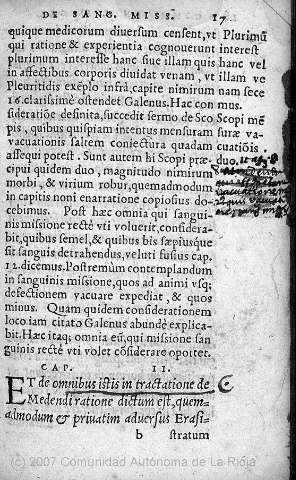 DE SANG. MISS. 17
quique medicorum diuersum censent, vt
qui ratione & experientia cognouerunt
plurimum interesse hanc siue illam quis
in affectibus corporis diuidat venam, vt
Pleuritidis exēplo infrà, capite nimirum
16. clarissimè ostendet Galenus. Hac con
sideratiōe definita, succedit sermo de Sco
pis, quibus quispiam intentus mensuram
vacuationis saltem coniectura quadam
assequi potest. Sunt autem hi Scopi præ
cipui quidem duo, magnitudo nimirum
morbi, & virium robur, quemadmodum
in capitis noni enarratione copiosius do
cebimus. Post hæc omnia qui sangui-
nis missione rectè vti voluerit, considera-
bit, quibus semel, & quibus bis sæpiúsque
sit sanguis detrahendus, veluti fusius cap.
12. dicemus. Postremùm contemplandum
in sanguinis missione, quos ad animi vsq;
defectionem vacuare expediat, & quos
minus. Quam quidem considerationem
loco iam citato Galenus abundè explica-
bit. Hæc itaq; omnia eū, qui missione san
guinis rectè vti volet cōsiderare oportet.
Plurimū
interest
hanc vel
illam ve
nam sece
mus.
Scopi mē
suræ va-
cuatiōis
duo.
CAP. II.
ET de omnibus istis in tractatione de
Medendi ratione dictum est, quem-
admodum & priuatim aduersus Erasi-
b stratum
(c) 2007 Comunidad Autónoma de La Rioja